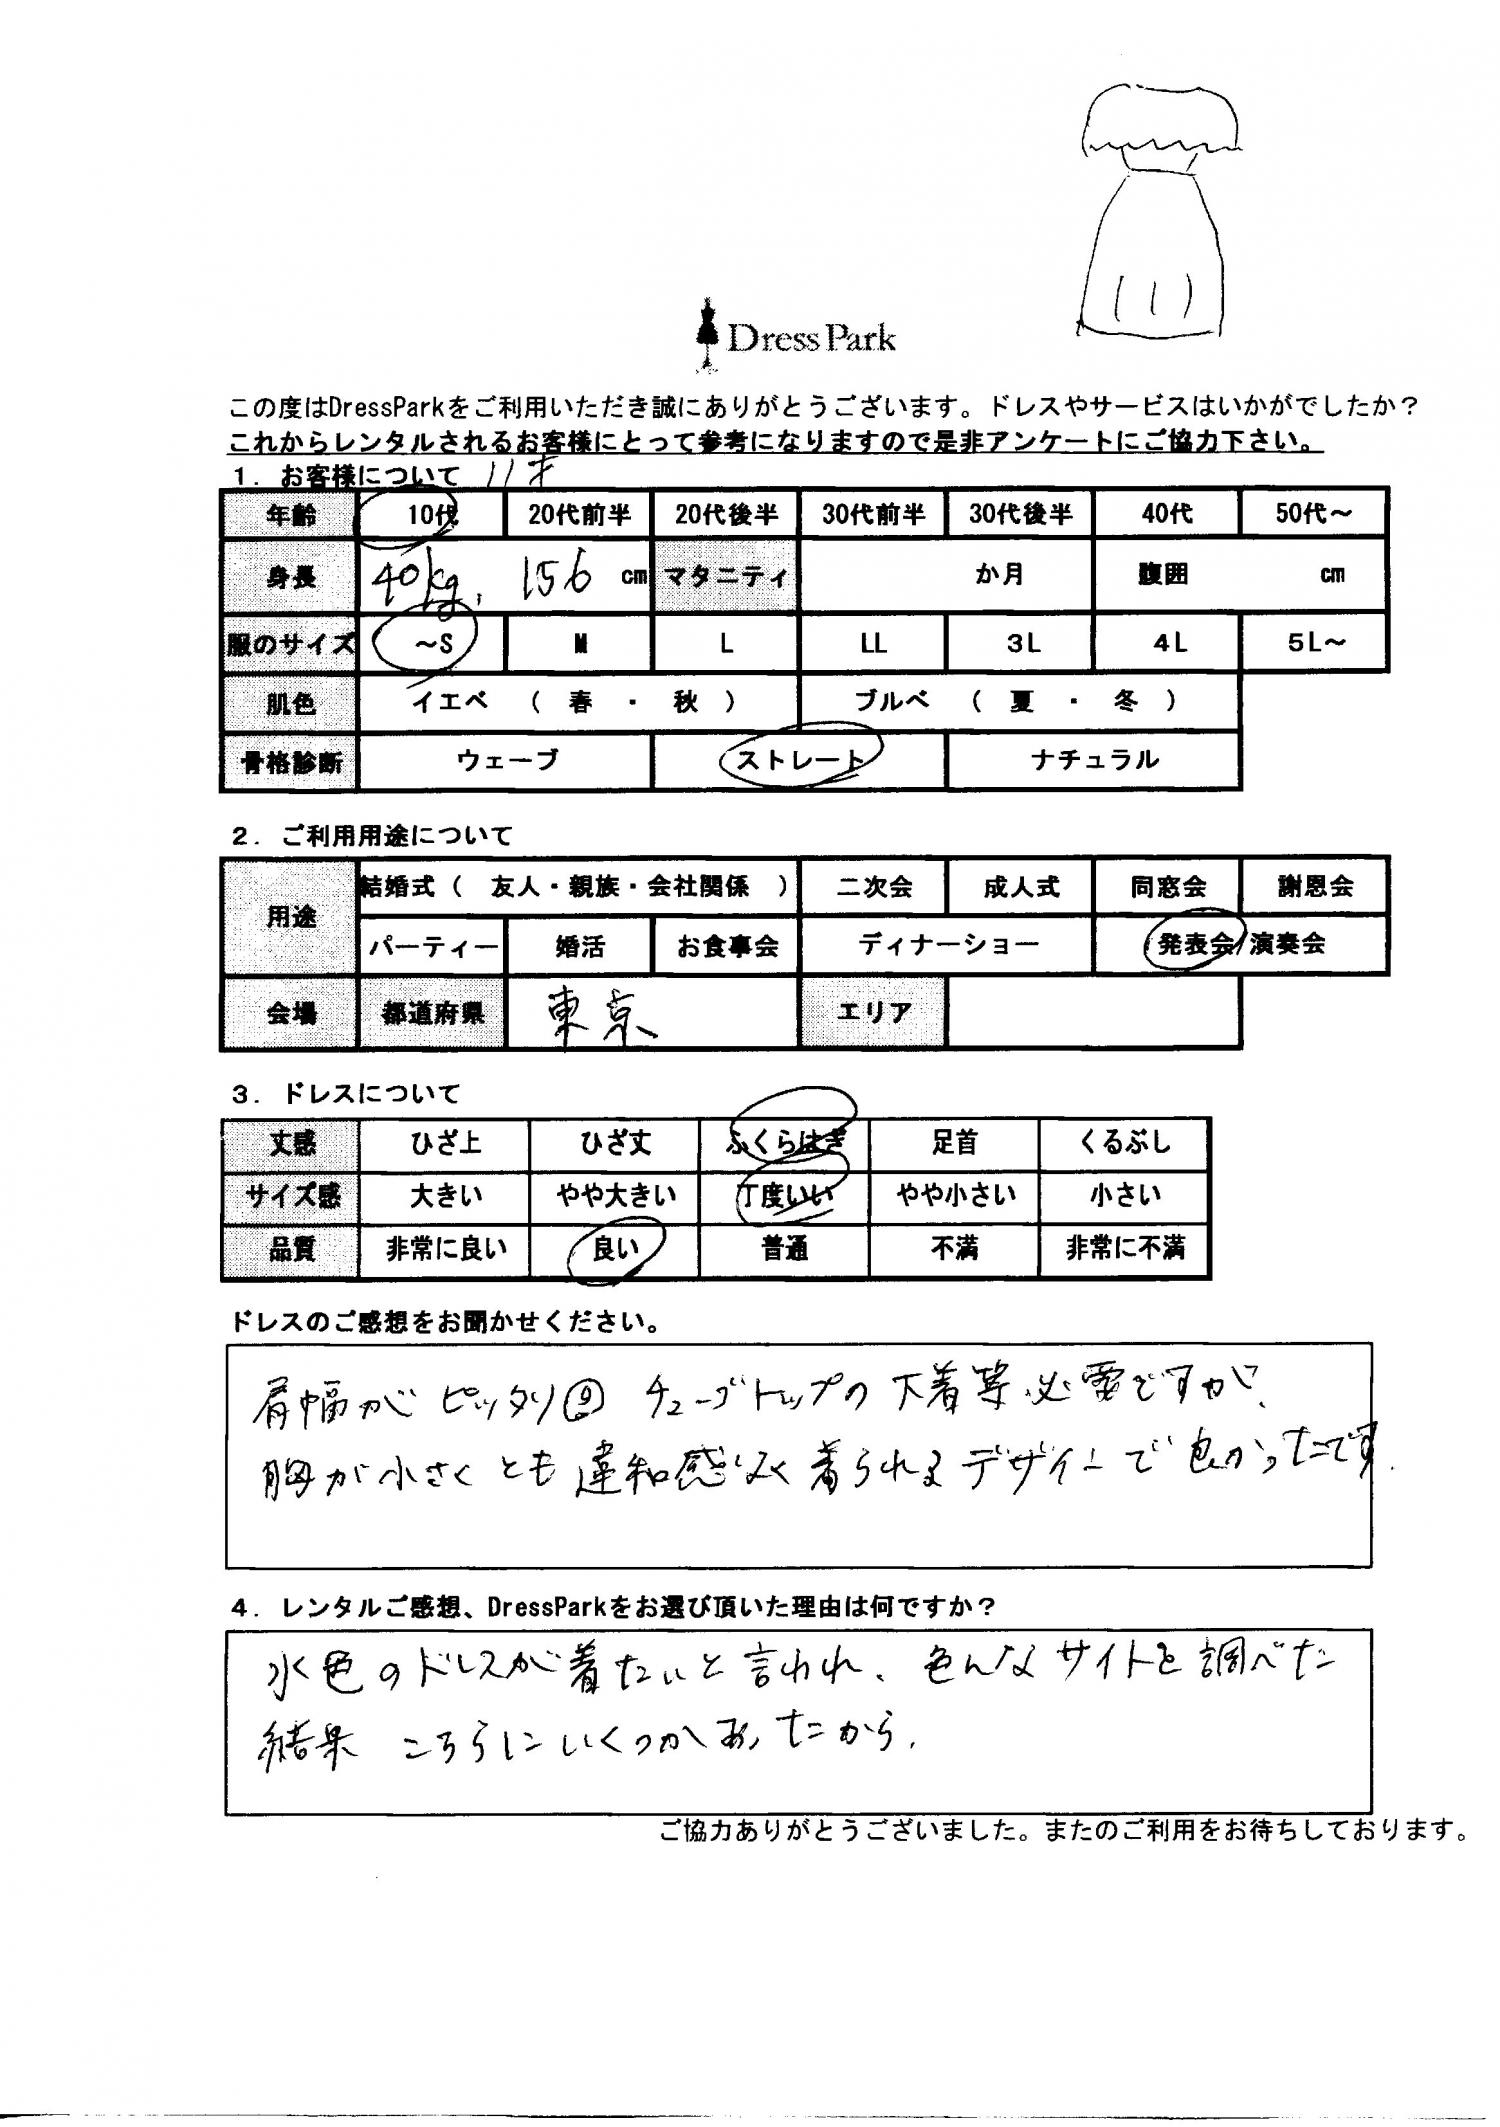 Dress Park
この度はDressParkをご利用いただき誠にありがとうございます。ドレスやサービスはいかがでしたか？
これからレンタルされるお客様にとって参考になりますので是非アンケートにご協力下さい。
1. お客様について 11才
年齢 10代 20代前半 20代後半 30代前半 30代後半 40代 50代～
身長 40kg. 156 cm マタニティ か月 腹囲 cm
服のサイズ ～S M L LL 3L 4L 5L～
肌色 イエベ ( 春 ・ 秋 ) ブルベ ( 夏 ・ 冬 )
骨格診断 ウェーブ ストレート ナチュラル
2. ご利用用途について
用途 結婚式 ( 友人・親族・会社関係 ) 二次会 成人式 同窓会 謝恩会
パーティー 婚活 お食事会 ディナーショー 発表会/演奏会
会場 都道府県 東京 エリア
3. ドレスについて
丈感 ひざ上 ひざ丈 ふくらはぎ 足首 くるぶし
サイズ感 大きい やや大きい 丁度いい やや小さい 小さい
品質 非常に良い 良い 普通 不満 非常に不満
ドレスのご感想をお聞かせください。
肩幅がピッタリ チューブトップの下着等必要ですが、
胸が小さくとも違和感なく着られるデザインで良かったです.
4. レンタルご感想、DressParkをお選び頂いた理由は何ですか？
水色のドレスが着たいと言われ、色んなサイトを調べた
結果 こちらにいくつかあったから.
ご協力ありがとうございました。またのご利用をお待ちしております。